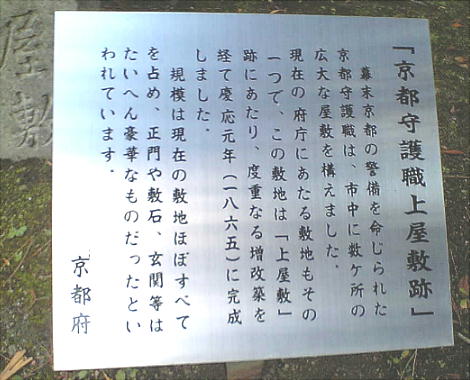 「京都守護職上屋敷跡」
幕末京都の警備を命じられた
京都守護職は、市中に数ケ所の
広大な屋敷を構えました．
現在の府庁にあたる敷地もその
一つで、この敷地は「上屋敷」
跡にあたり、度重なる増改築を
経て慶応元年（一八六五）に完成
しました．
規模は現在の敷地ほぼすべて
を占め、正門や敷石、玄関等は
たいへん豪華なものだったとい
われています．
京都府
屋敷